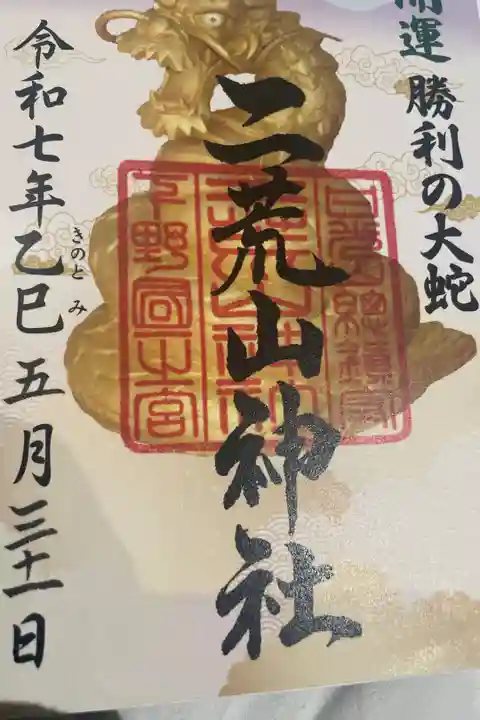 開運 勝利の大蛇
二荒山神社
下野國一之宮
令和七年乙巳 五月三十一日
きのと み